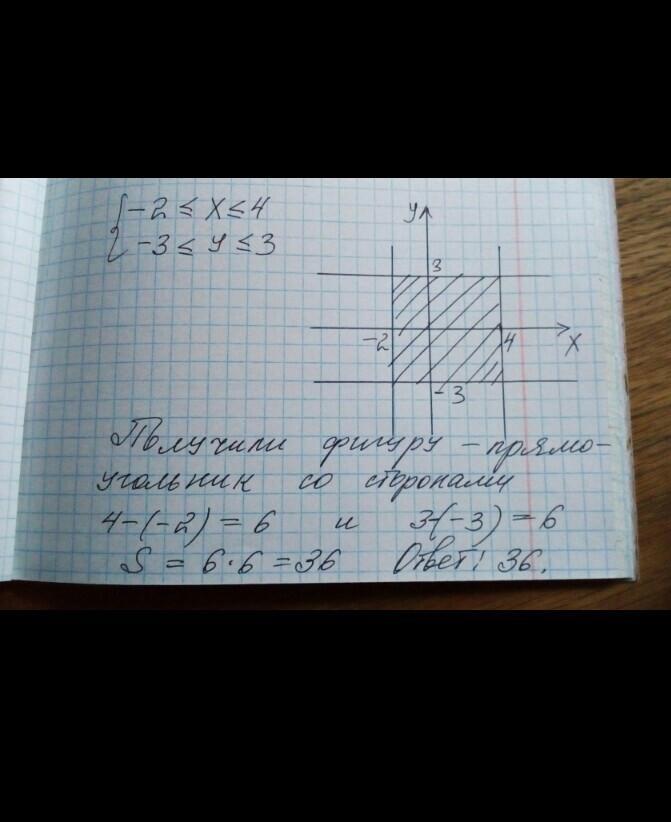 { -2 ≤ x ≤ 4
-3 ≤ y ≤ 3
y
3
-2
4
x
-3
Получили фигуру - прямо-
угольник со сторонами
4-(-2) = 6 и 3-(-3) = 6
S = 6·6 = 36 Ответ: 36.